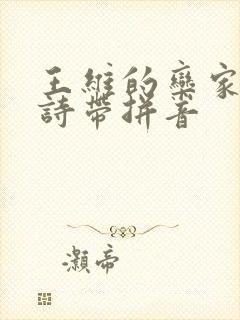 王維的欒家
詩帶拼音
灝帝